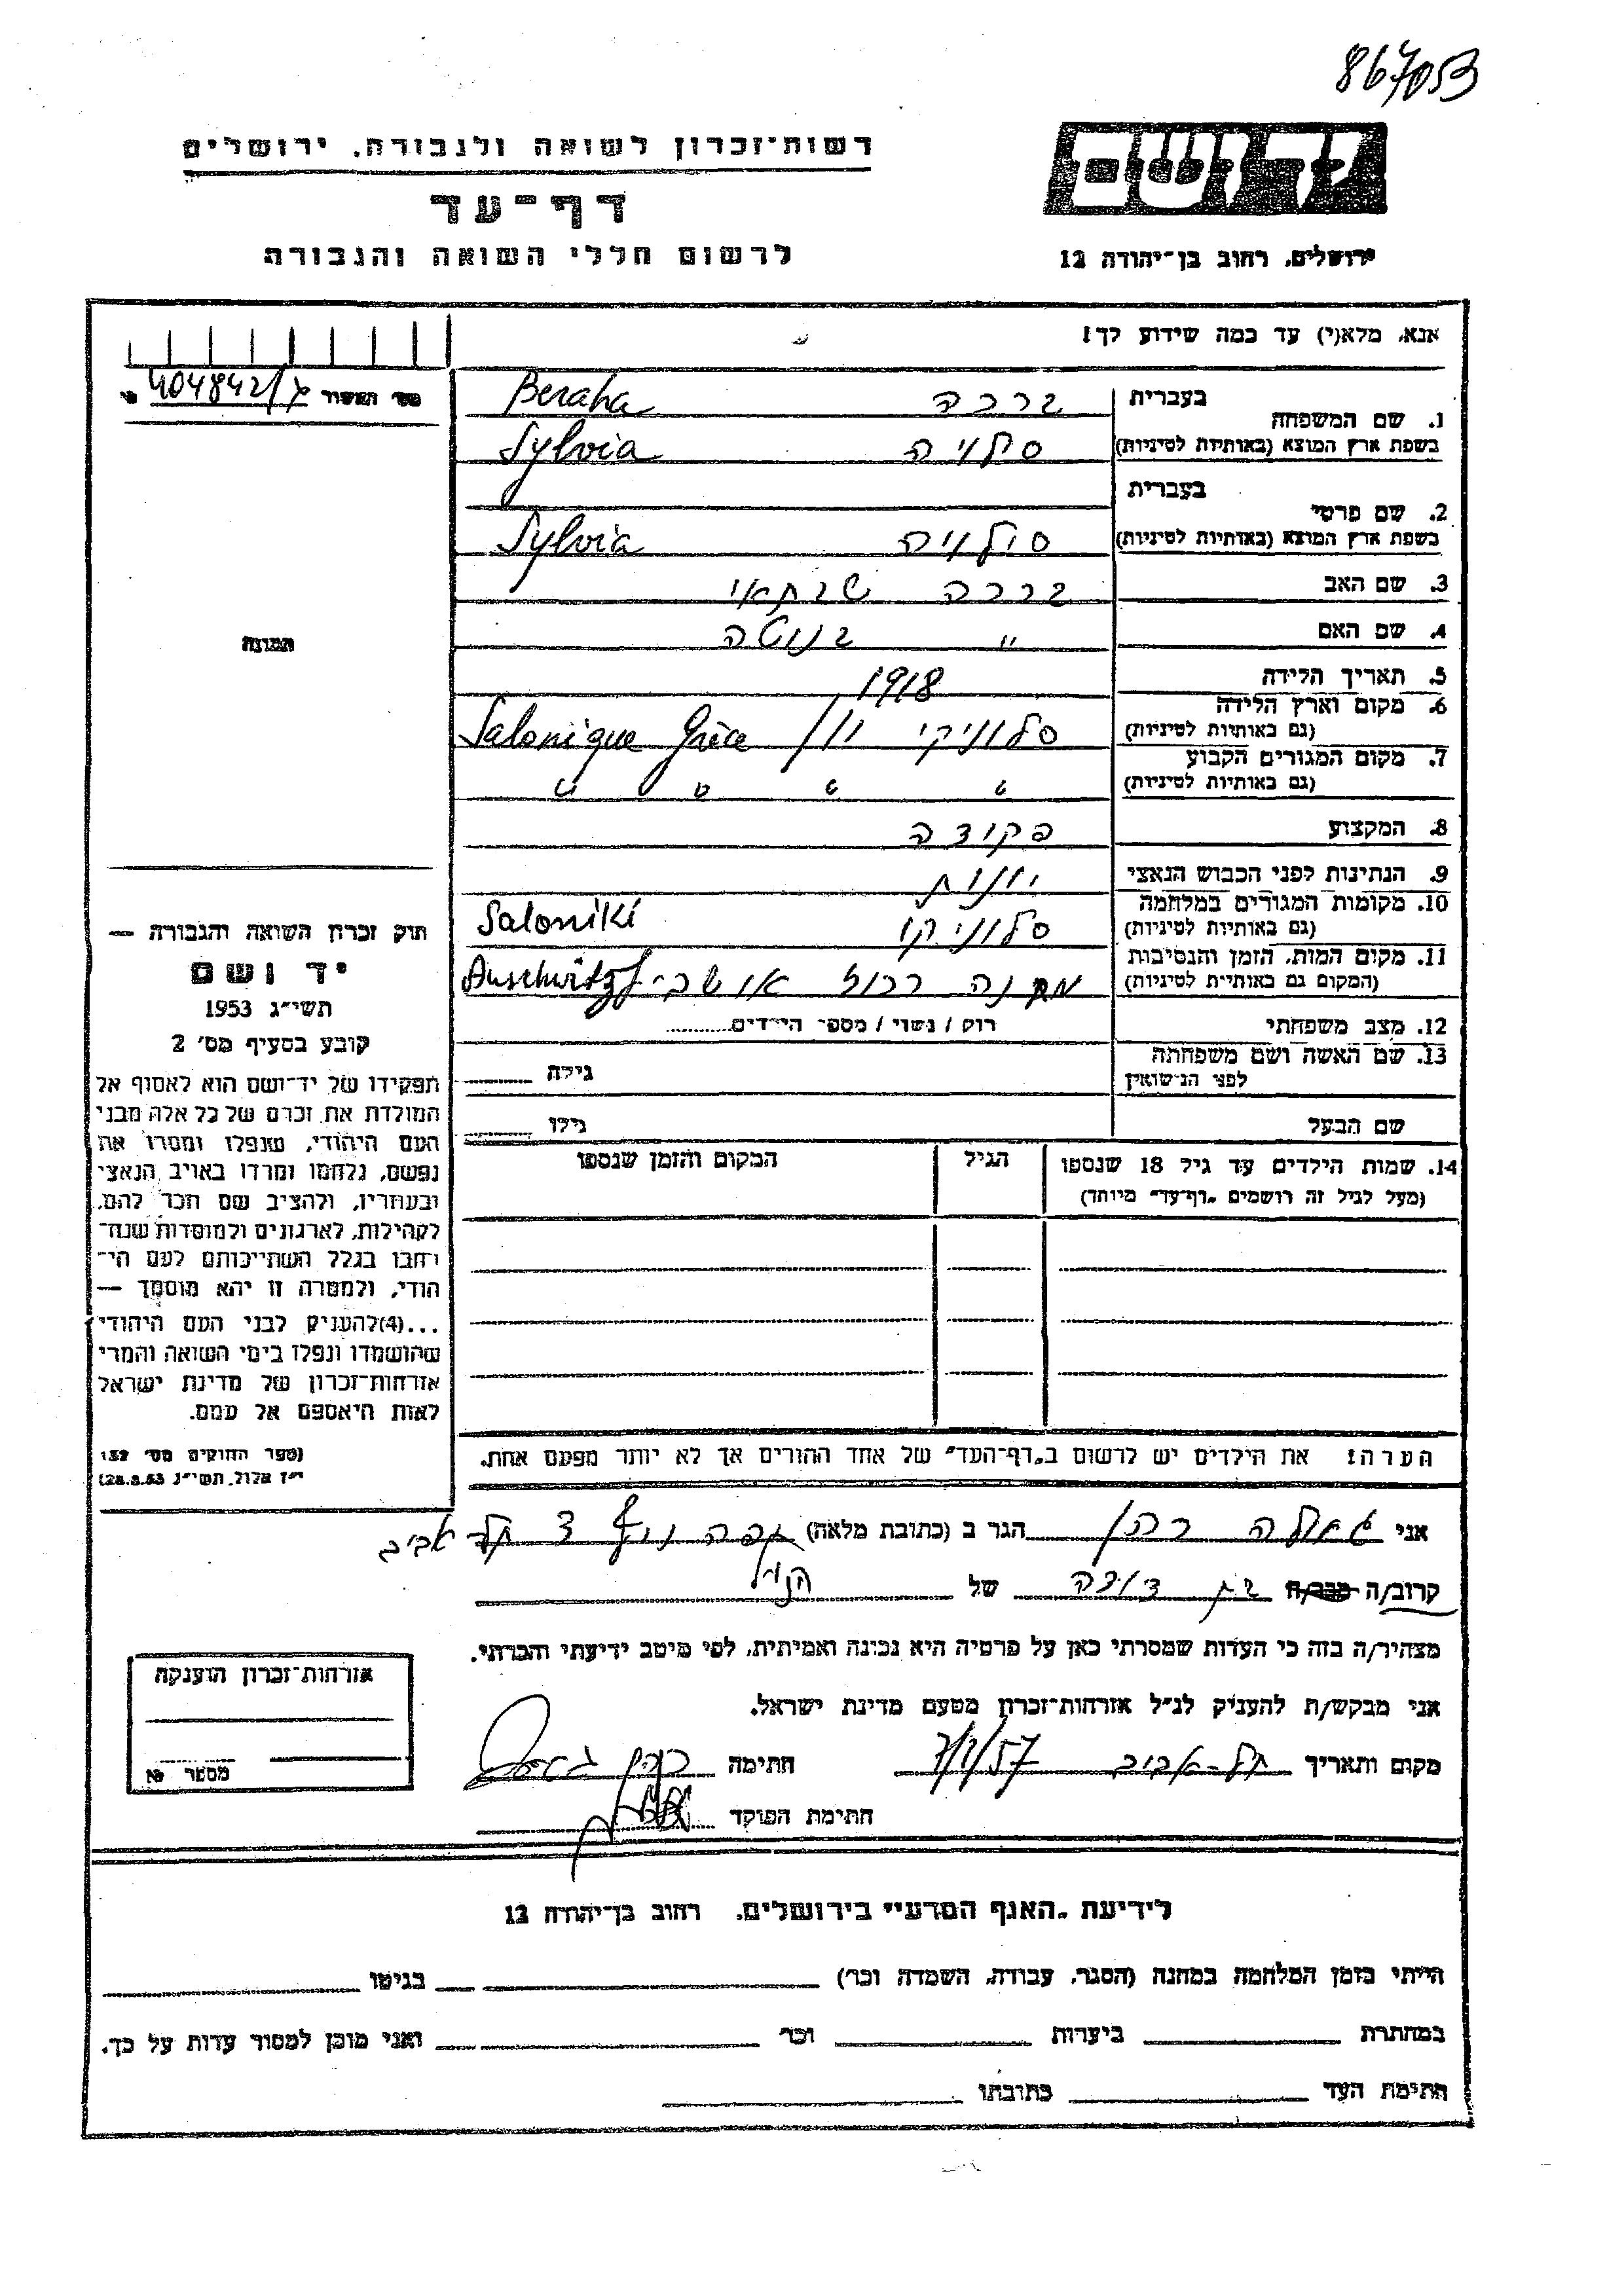 867053
רשות־זכרון לשואה ולגבורה, ירושלים
דף־עד
לרשום חללי השואה והגבורה
יד ושם
ירושלים, רחוב בן־יהודה 12
אנא, מלא(י) עד כמה שידוע לך!
מס' האשור 404842/
1. שם המשפחה
בעברית
בשפת ארץ המוצא (באותיות לטיניות)
ברכה Beraha
סילויה Sylvia
2. שם פרטי
בעברית
בשפת ארץ המוצא (באותיות לטיניות)
סילויה Sylvia
3. שם האב ברכה שבתאי
4. שם האם " בנוטה
5. תאריך הלידה 1918
6. מקום וארץ הלידה
(גם באותיות לטיניות)
סלוניקי יון Salonique Grèce
7. מקום המגורים הקבוע
(גם באותיות לטיניות)
" " " "
8. המקצוע פקידה
9. הנתינות לפני הכבוש הנאצי יונית
10. מקומות המגורים במלחמה
(גם באותיות לטיניות)
סלוניקי Saloniki
11. מקום המות, הזמן והנסיבות
(המקום גם באותיות לטיניות)
מחנה רכוז אושב- Auschwitz
12. מצב משפחתי רווק / נשוי / מספר הילדים
13. שם האשה ושם משפחתה
לפני הנישואין
גילה
שם הבעל גילו
14. שמות הילדים עד גיל 18 שנספו
(מעל לגיל זה רושמים "דף־עד" מיוחד)
הגיל
המקום והזמן שנספו
הערה: את הילדים יש לרשום ב"דף־העד" של אחד ההורים אך לא יותר מפעם אחת.
התמונה
חוק זכרון השואה והגבורה —
יד ושם
תשי״ג 1953
קובע בסעיף מס' 2
תפקידו של יד־ושם הוא לאסוף אל
המולדת את זכרם של כל אלה מבני
העם היהודי, שנפלו ומסרו את
נפשם, נלחמו ומרדו באויב הנאצי
ובעוזריו, ולהציב שם וזכר להם,
לקהילות, לארגונים ולמוסדות שנח־
רבו בגלל השתייכותם לעם הי־
הודי, ולמטרה זו יהא מוסמך —
...(4)להעניק לבני העם היהודי
שהושמדו ונפלו בימי השואה והמרי
אזרחות־זכרון של מדינת ישראל
לאות היאספם אל עמם.
(ספר החוקים מס' 132
י״ז אלול, תשי״ג 28.8.53)
אני גאולה כהן הגר ב (כתובת מלאה) נוף 3 תל אביב
קרוב/ה מכר/ה בת דודה של הנ״ל
מצהיר/ה בזה כי העדות שמסרתי כאן על פרטיה היא נכונה ואמיתית, לפי מיטב ידיעתי והכרתי.
אני מבקש/ת להעניק לנ״ל אזרחות־זכרון מטעם מדינת ישראל.
מקום ותאריך תל-אביב 7/1/57 חתימה
חתימת הפוקד
אזרחות־זכרון הוענקה
מספר
לידיעת "האגף המדעי" בירושלים, רחוב בן־יהודה 12
הייתי בזמן המלחמה במחנה (הסגר, עבודה, השמדה וכו') בגיטו
במחתרת ביערות וכו' ואני מוכן למסור עדות על כך.
חתימת העד כתובתו